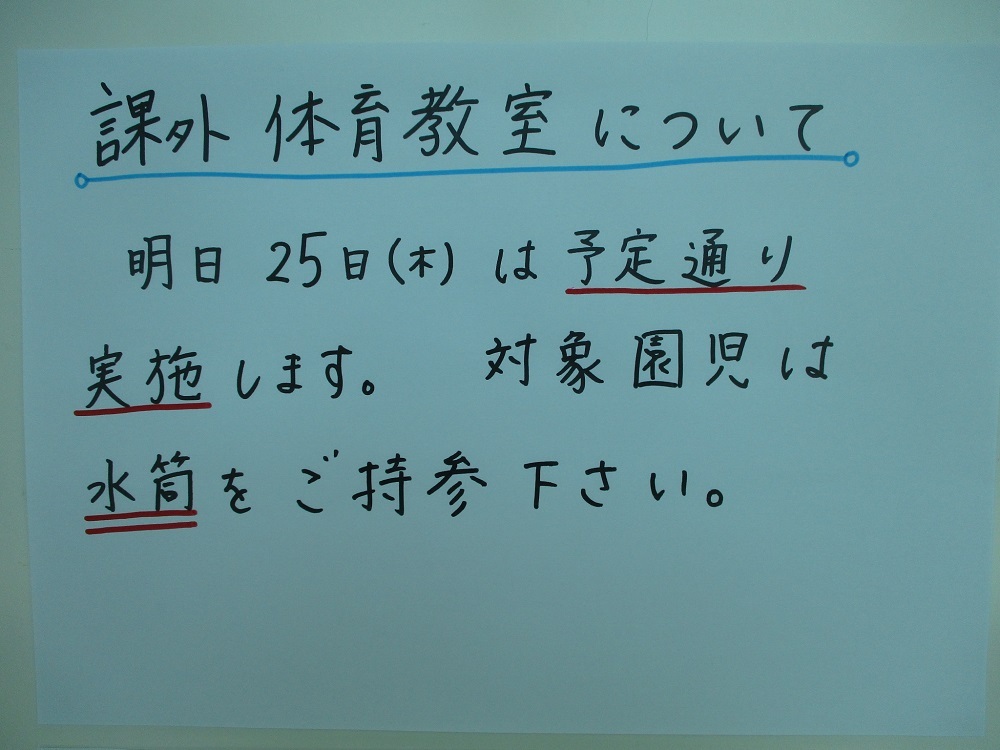 課外 体育教室 について
明日 25日(木) は 予定通り
実施します。 対象園児は
水筒を ご持参下さい。